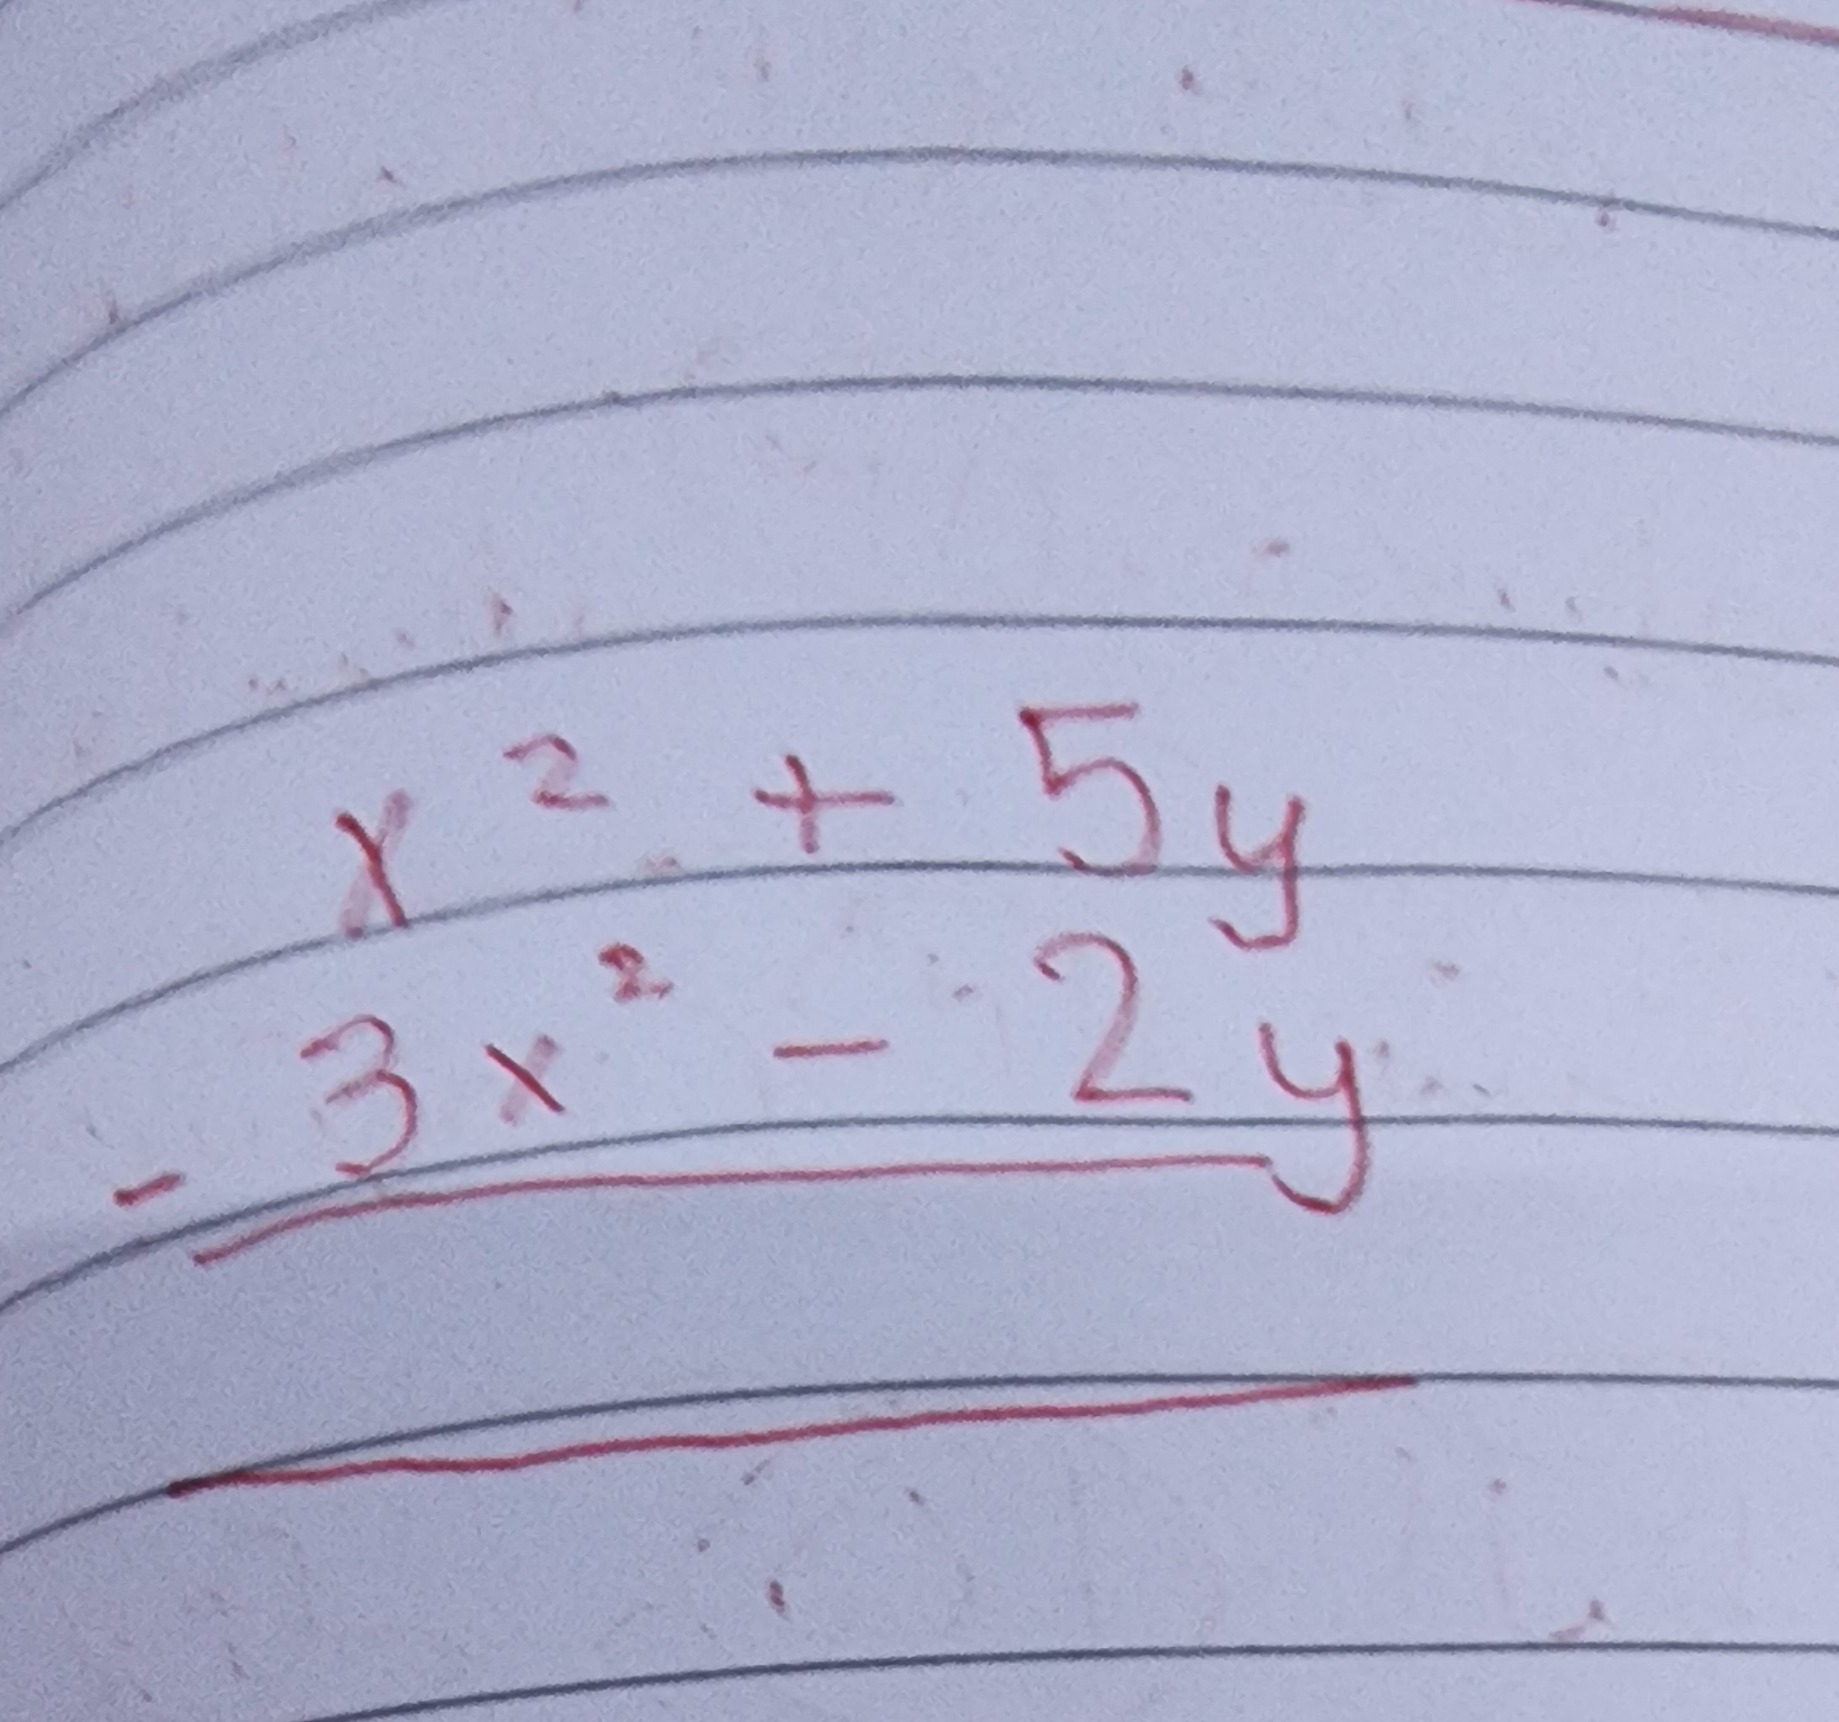 x² + 5y
- 3x² - 2y